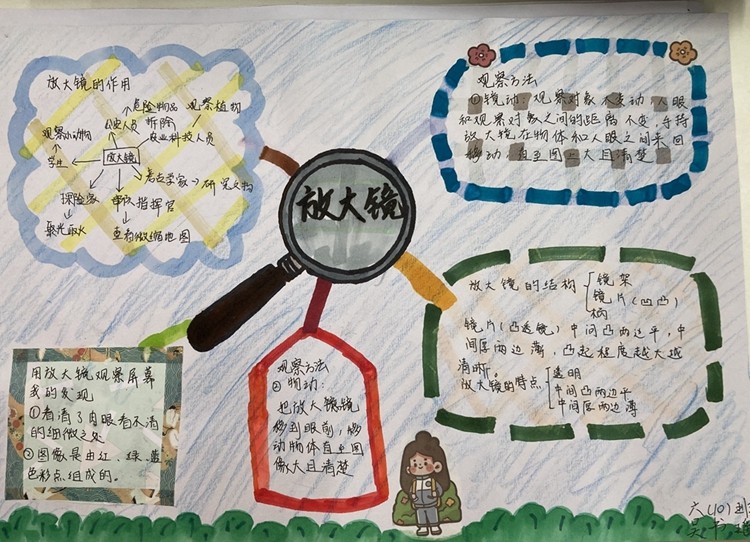 放大镜
放大镜的作用
危险物品 观察植物
公安人员 拆除
农业科技人员
观察小动物
学生
放大镜
考古学家→研究文物
探险家
军队指挥官
聚光取火
查看微缩地图
观察方法
①镜动:观察对象不变动,人眼
和观察对象之间的距离不变,手持
放大镜在物体和人眼之间来回
移动,直至图像大且清楚
放大镜的结构
镜架
镜片(凹凸)
柄
镜片(凸透镜)中间凸两边平,中
间厚两边薄,凸起程度越大越
清晰。
放大镜的特点
透明
中间凸两边平
中间厚两边薄
用放大镜观察屏幕
我的发现
①看清了肉眼看不清
的细微之处
②图像是由红、绿、蓝
色彩点组成的。
观察方法
②物动:
把放大镜
移到眼前,移
动物体直至图
像大且清楚
六(10)班